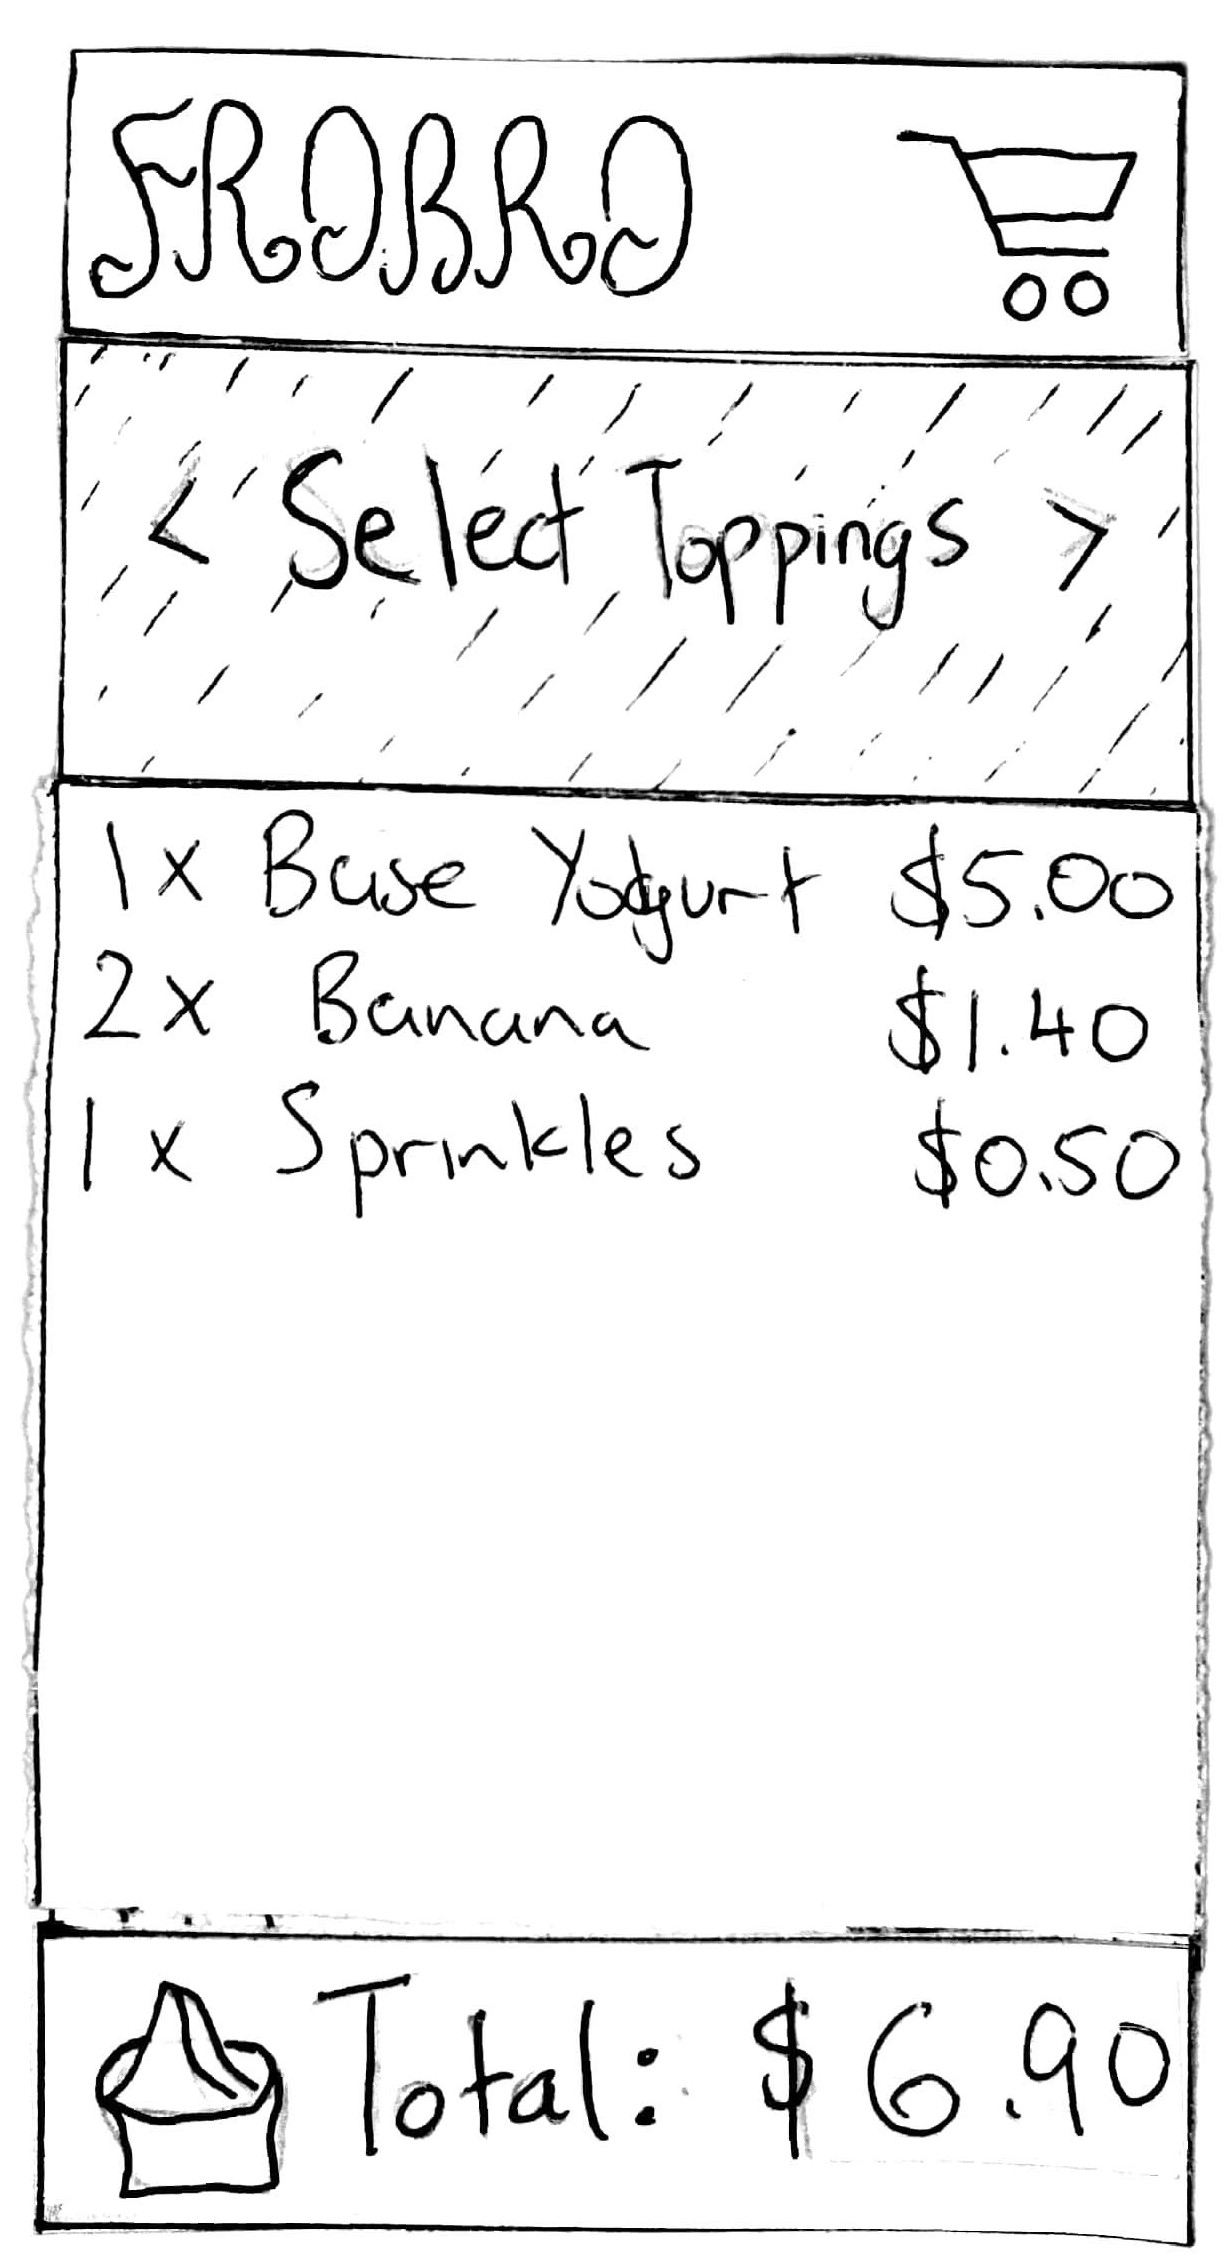 FROBRO
< Select Toppings >
1x Base Yogurt $5.00
2x Banana $1.40
1x Sprinkles $0.50
Total: $6.90